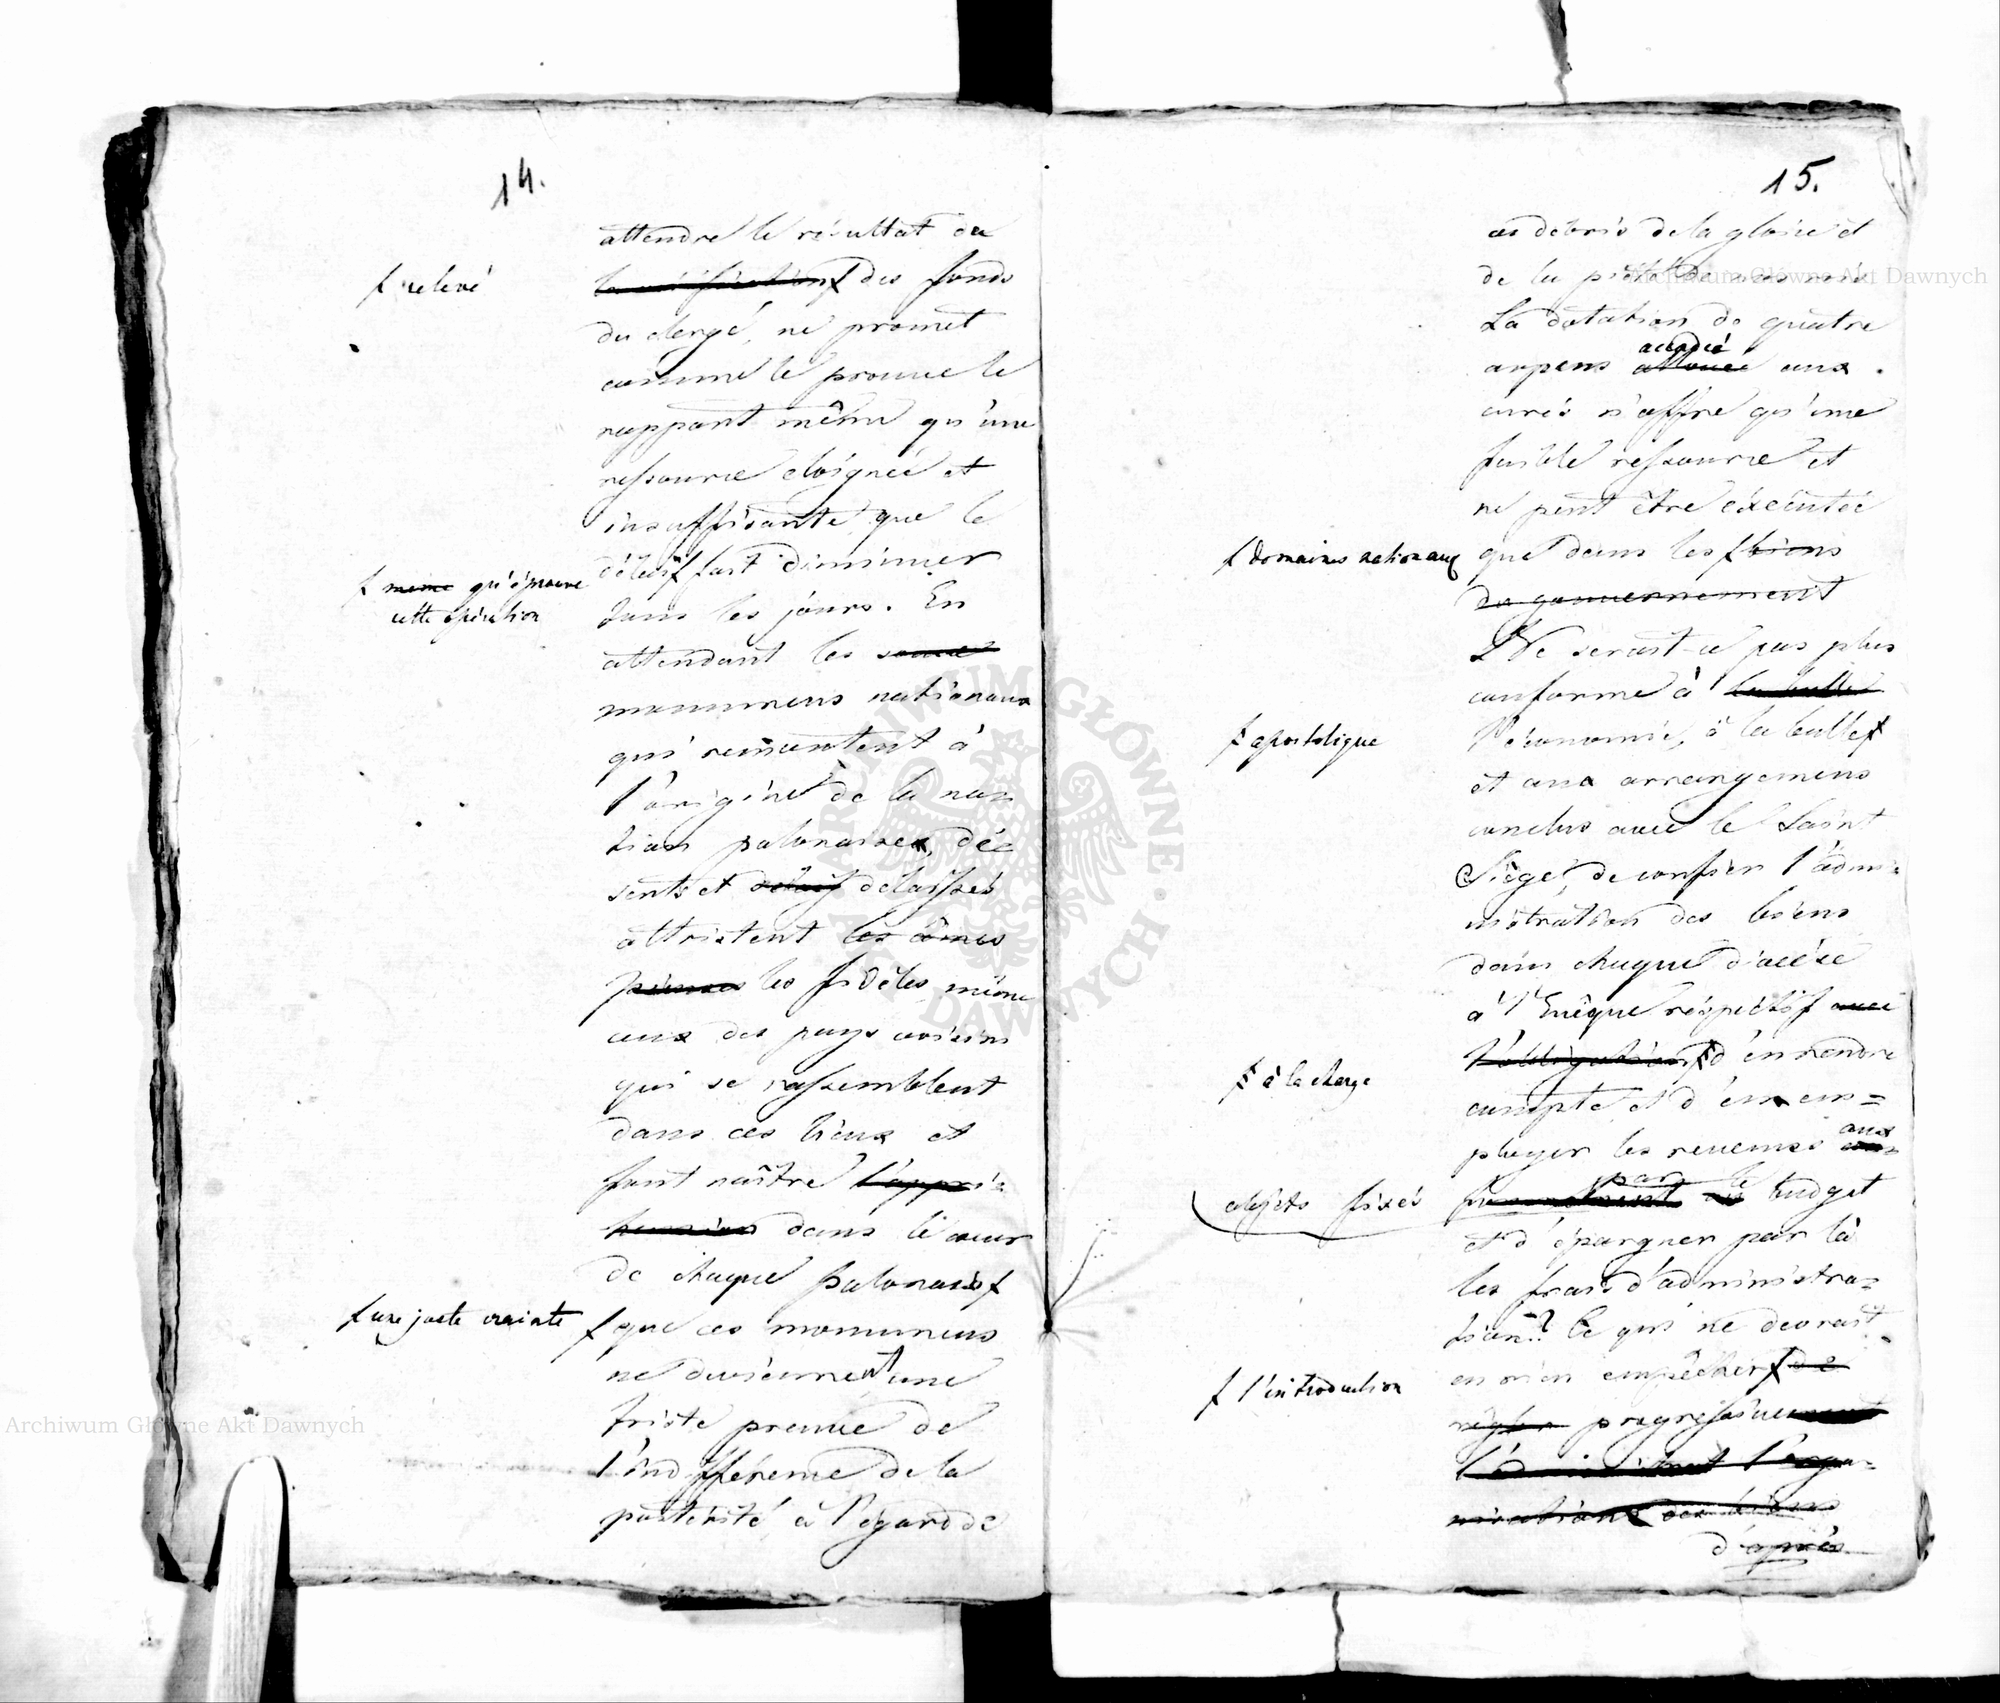 14.
attendre le résultat du
ƒ relevé
la vérification ƒ des fonds
du clergé, ne promet
comme le prouve le
rapport même qu'une
ressource eloignée et
insuffisante que le
délai ƒ fait diminuer
ƒ même qu'éprouve
cette opération
tous les jours. En
attendant les
monumens nationaux
qui remontent à
l'origine de la na=
tion polonaise, dé=
serts et délaissés
attristent les âmes
pieuses les fidèles, même
ceux des pays voisins
qui se rassemblent
dans ces lieux et
font naître l'appré=
hension dans le cœur
de chaque polonais ƒ
ƒ une juste crainte
ƒ que ces monumens
ne deviennent une
triste preuve de
l'indifférence de la
postérité, à l'égard de
15.
ces débris de la gloire et
de la piété de nos rois
La dotation de quatre
accordée
arpens allouée aux
curés n'offre qu'une
faible ressource et
ne peut être éxécutée
ƒ Domaines nationaux
que dans les ƒ biens
du gouvernement
Ne serait-ce pas plus
conforme à la bulle
l'économie, à la bulle ƒ
ƒ apostolique
et aux arrangemens
conclus avec le Saint
Siège, de confier l'admi=
nistration des biens
dans chaque diocèse
à l'Evêque réspéctif avec
l'obligation ƒ d'en rendre
ƒ à la charge
compte et d'en em=
ployer les revenus aux
objets fixés
par le
budget
et d'épargner par là
les frais d'administra=
tion? Ce qui ne devrait
en rien empêcher ƒ de
ƒ l'introduction
régler progressivement
l'orga=
nisation des biens
d'après
Archiwum Główne Akt Dawnych
Archiwum Główne Akt Dawnych
ARCHIWUM GŁÓWNE · AKT DAWNYCH ·